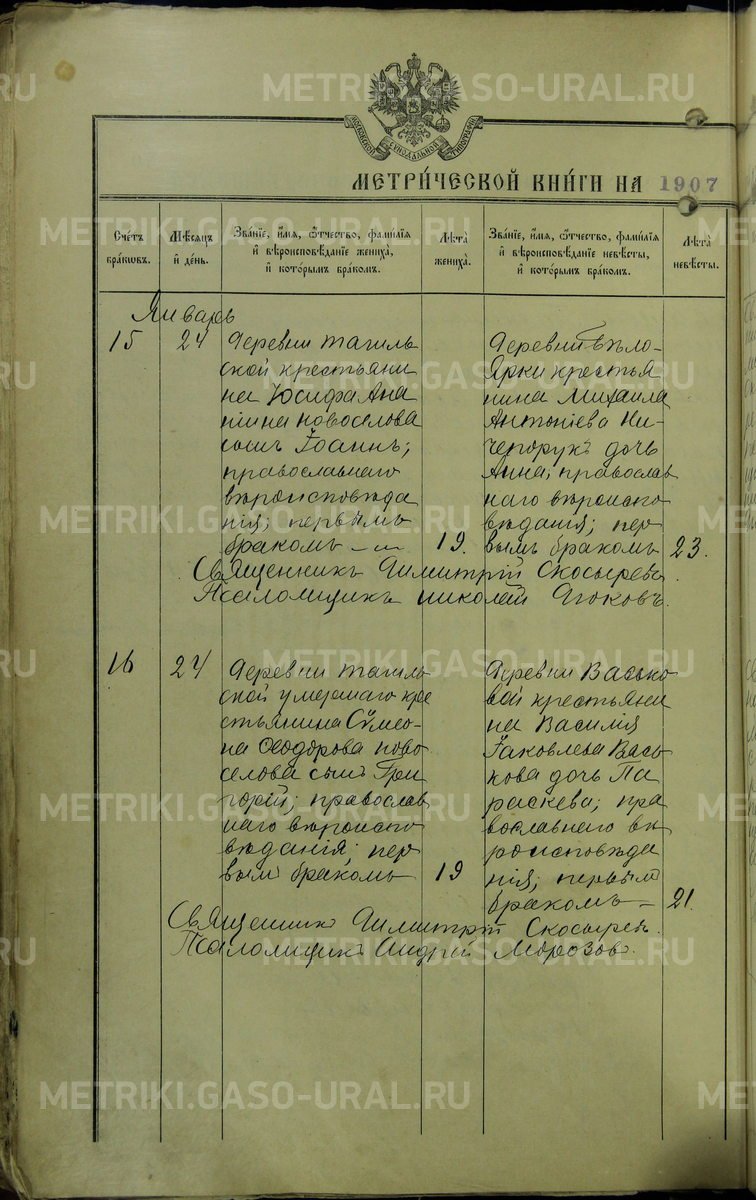 METRIKI.GASO-URAL.RU
МОСКОВСКОЙ СѴНОДАЛЬНОЙ ТИПОГРАФІИ
МЕТРИ́ЧЕСКОЙ КНИ́ГИ НА 1907
Сче́тъ бра́ковъ.
Мѣ́сяцъ и҆ де́нь.
Зва́нїе, и҆́мя, ѻ҆́тчество, фами́лїя и҆ вѣроисповѣ́данїе жениха̀, и҆ кото́рымъ бра́комъ.
Лѣ́та жениха̀.
Зва́нїе, и҆́мя, ѻ҆́тчество, фами́лїя и҆ вѣроисповѣ́данїе невѣ́сты, и҆ кото́рымъ бра́комъ.
Лѣ́та невѣ́сты.
Январь
15
24
Деревни Тагиль
ской крестьяни
на Іосифа Ана
ніина Новоселова
сынъ Іоаннъ;
православнаго
вѣроисповѣда
нія; первымъ
бракомъ —
19.
Деревни Бѣло-
Ярки крестья
нина Михаила
Антоніева Ни-
чепорукъ дочь
Анна, православ
наго вѣроиспо
вѣданія; пер
вымъ бракомъ
23.
Священникъ Димитрій Скосыревъ.
Псаломщикъ Николай
16
24
Деревни Тагиль
ской умершаго кре
стьянина Сѵмео-
на Ѳеодорова Ново
селова сынъ Гри
горій; православ
наго вѣроиспо
вѣданія; пер
вымъ бракомъ
19
Деревни Васько
вой крестьяни
на Василія
Іаковлева Вась
кова дочь Па
раскева; пра
вославнаго вѣ
роисповѣда
нія; первымъ
бракомъ —
21.
Священникъ Димитрій Скосыревъ.
Псаломщикъ Андрей Морозовъ.